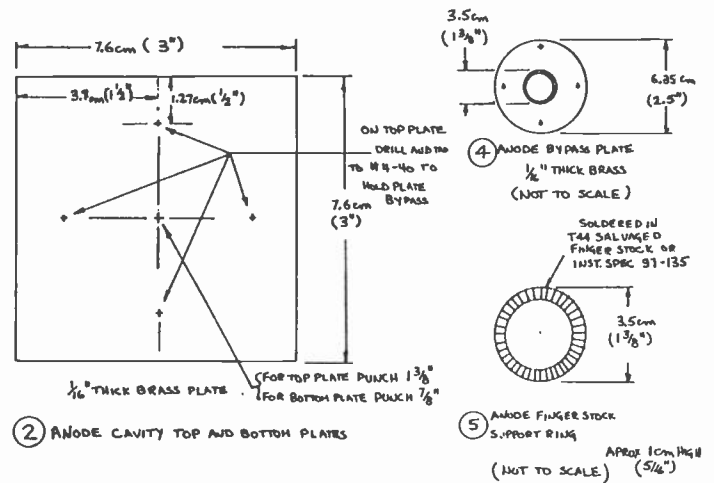 7.6cm (3")
3.8cm (1½")
1.27cm (½")
ON TOP PLATE
DRILL AND TAP
TO #4-40 TO
HOLD PLATE
BYPASS
7.6cm
(3")
1/16" THICK BRASS PLATE
FOR TOP PLATE PUNCH 1 3/8"
FOR BOTTOM PLATE PUNCH 7/8"
2 ANODE CAVITY TOP AND BOTTOM PLATES
3.5cm
(1 3/8")
6.35cm
(2.5")
4 ANODE BYPASS PLATE
1/16" THICK BRASS
(NOT TO SCALE)
SOLDERED IN
T44 SALVAGED
FINGER STOCK OR
INST. SPEC 97-135
3.5cm
(1 3/8")
5 ANODE FINGER STOCK
SUPPORT RING
(NOT TO SCALE)
APROX 1cm HIGH